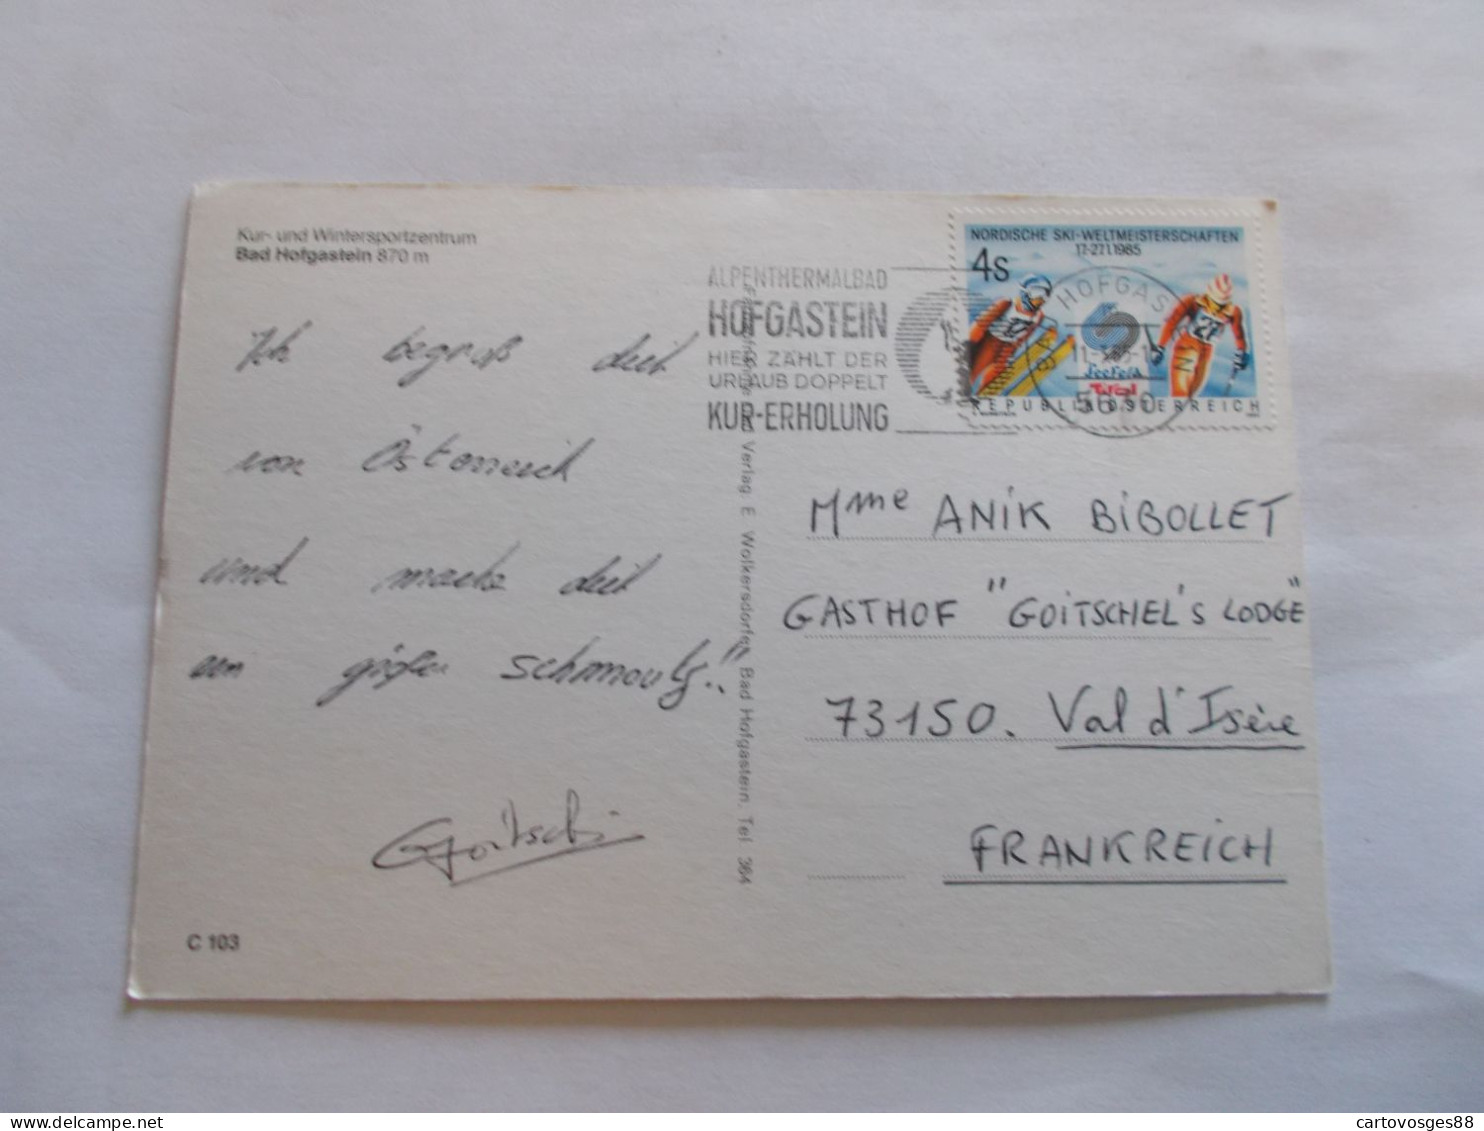 Kur- und Wintersportzentrum
Bad Hofgastein 870 m
Ich begruß dich
von Österreich
und mache dich
ein großer schmoutz!!
Goitschel
C 103
Verlag E. Wolkersdorfer, Bad Hofgastein, Tel. 364
ALPENTHERMALBAD
HOFGASTEIN
HIER ZÄHLT DER
URLAUB DOPPELT
KUR-ERHOLUNG
NORDISCHE SKI-WELTMEISTERSCHAFTEN
17-27.1.1985
4s
BAD HOFGASTEIN
5630
Seefeld
Tirol
REPUBLIK ÖSTERREICH
Mme ANiK BiBOLLET
GASTHOF "GOiTSCHEL'S LODGE"
73150. Val d'Isère
FRANKREICH
cartovosges88.com
cartovosges88